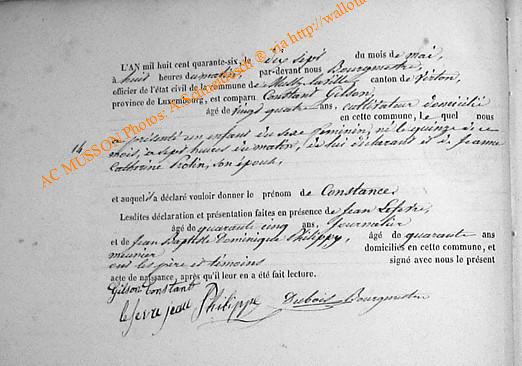 L'AN mil huit cent quarante-six, le dix sept du mois de mai,
à huit heures du matin, par-devant nous Bourgmestre,
officier de l'état civil de la commune de canton de Virton,
province de Luxembourg, est comparu Constant Gilson,
âgé de vingt quatre ans, cultivateur domicilié
en cette commune, le quel nous
14 a présenté un enfant du sexe féminin, né le quinze de ce
mois, à sept heures du matin, de lui déclarant et de Jeanne
Catherine son épouse,
et auquel il a déclaré vouloir donner le prénom de Constance
Lesdites déclaration et présentation faites en présence de Jean Lefevre,
âgé de quarante cinq ans, journalier
et de Jean Baptiste Dominique Philippy, âgé de quarante ans
meunier domiciliés en cette commune, et
ont les père et témoins signé avec nous le présent
acte de naissance, après qu'il leur en a été fait lecture.
Gilson Constant
lefevre jean Philippe Dubois Bourgmestre
AC MUSSON Photos: via http://wallo